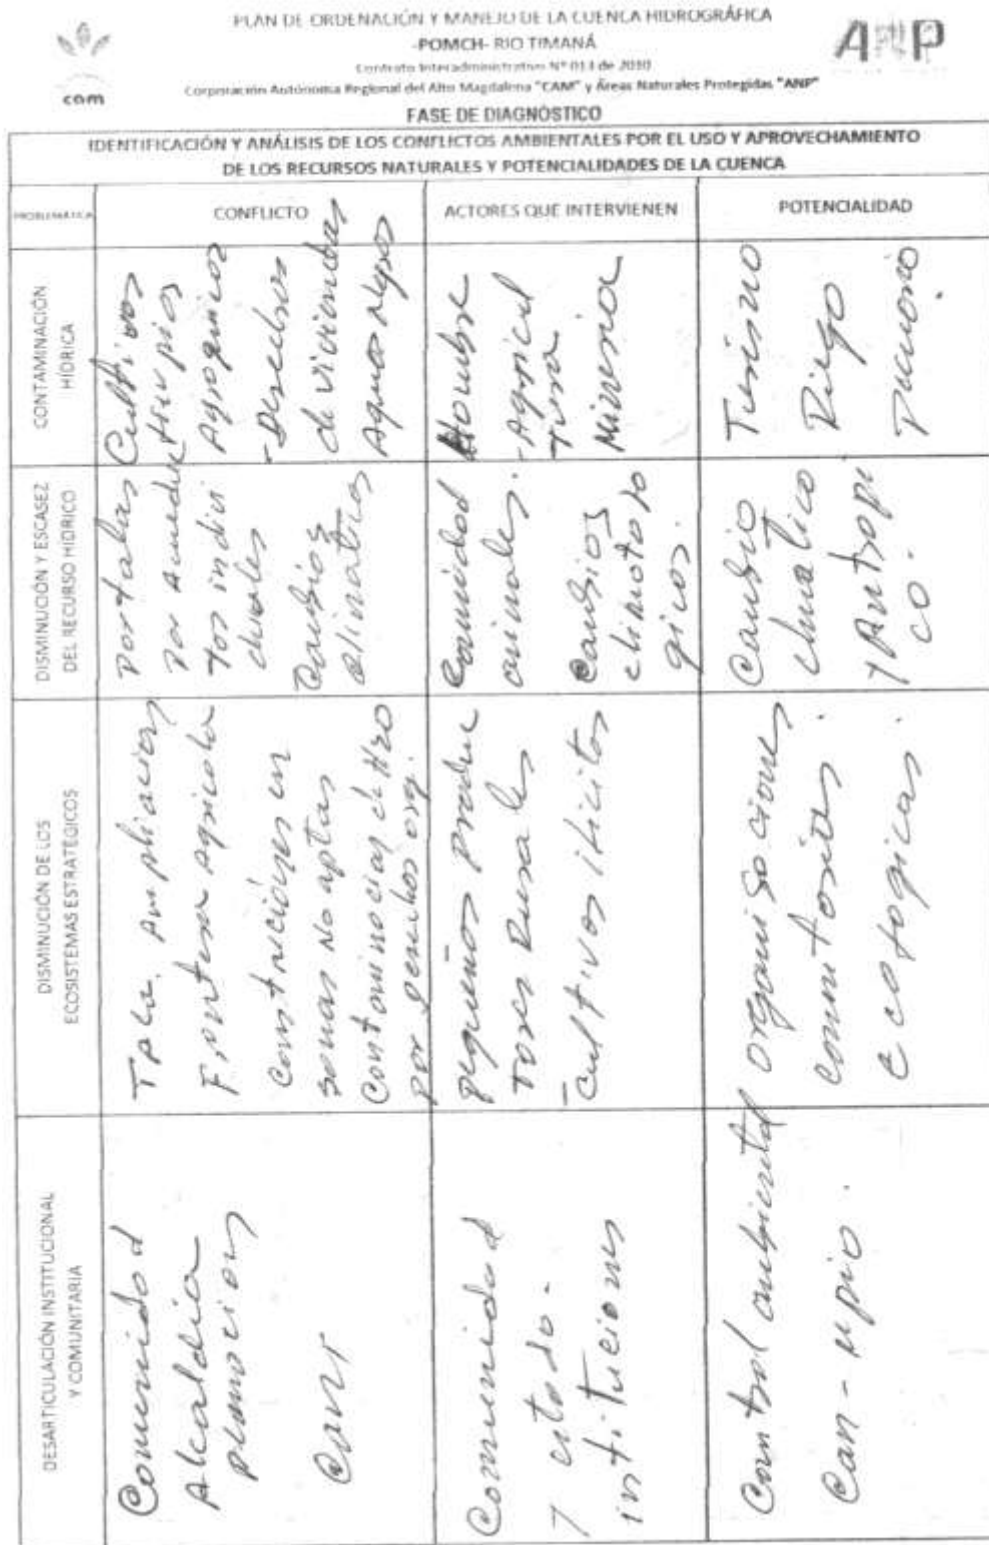 PLAN DE ORDENACIÓN Y MANEJO DE LA CUENCA HIDROGRÁFICA
-POMCH- RIO TIMANÁ
Contrato Interadministrativo N° 013 de 2010
Corporación Autónoma Regional del Alto Magdalena "CAM" y Áreas Naturales Protegidas "ANP"
cam
ANP
FASE DE DIAGNÓSTICO
IDENTIFICACIÓN Y ANÁLISIS DE LOS CONFLICTOS AMBIENTALES POR EL USO Y APROVECHAMIENTO
DE LOS RECURSOS NATURALES Y POTENCIALIDADES DE LA CUENCA
PROBLEMÁTICA
CONFLICTO
ACTORES QUE INTERVIENEN
POTENCIALIDAD
CONTAMINACIÓN
HÍDRICA
Cultivos
Agroquimicos
-Desechos
de viviendas
Aguas Negras
Hombre
-Agricul
tura
Mineria
Turismo
Riego
DISMINUCIÓN Y ESCASEZ
DEL RECURSO HÍDRICO
Por
tos indivi
duales
Cambios
climatios
Comunidad
animales.
Cambios
climatolo
gicos.
Cambio
climatico
y Antropi
co.
DISMINUCIÓN DE LOS
ECOSISTEMAS ESTRATÉGICOS
Tala Ampliacion
Frontera Agricola
Construcciones en
sonas No aptas
Contaminacion de H2O
por desechos org.
pequeños produc
tores Rurales
-Cultivos ilicitos
organisaciones
comunitarias.
ecologicas.
DESARTICULACIÓN INSTITUCIONAL
Y COMUNITARIA
Comunidad
Alcaldia
planacion
Cam
Comunidad
y estado.
intituciones
Control ambiental
Cam - Mpio.